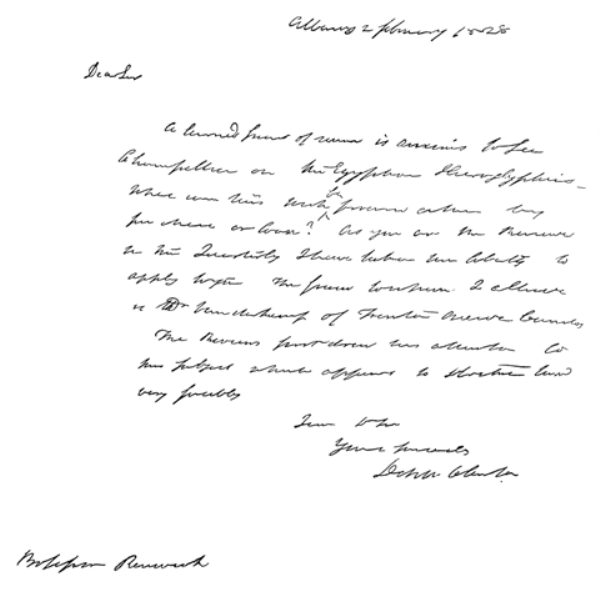 Albany 2 February 1828
Dear Sir
A learned friend of mine is anxious to see
Champollion on the Egyptian Hieroglyphics -
Where can this work be procured either by
purchase or loan? As you are the Reviewer
in the Quarterly I have taken the liberty to
apply to you The friend to whom I allude
is Dr Vanderkemp of Trenton Oneida County
The Review first drew his attention to
this subject which appears to his mind
very forcibly
I am
Yours sincerely
DeWitt Clinton
Professor Renwick